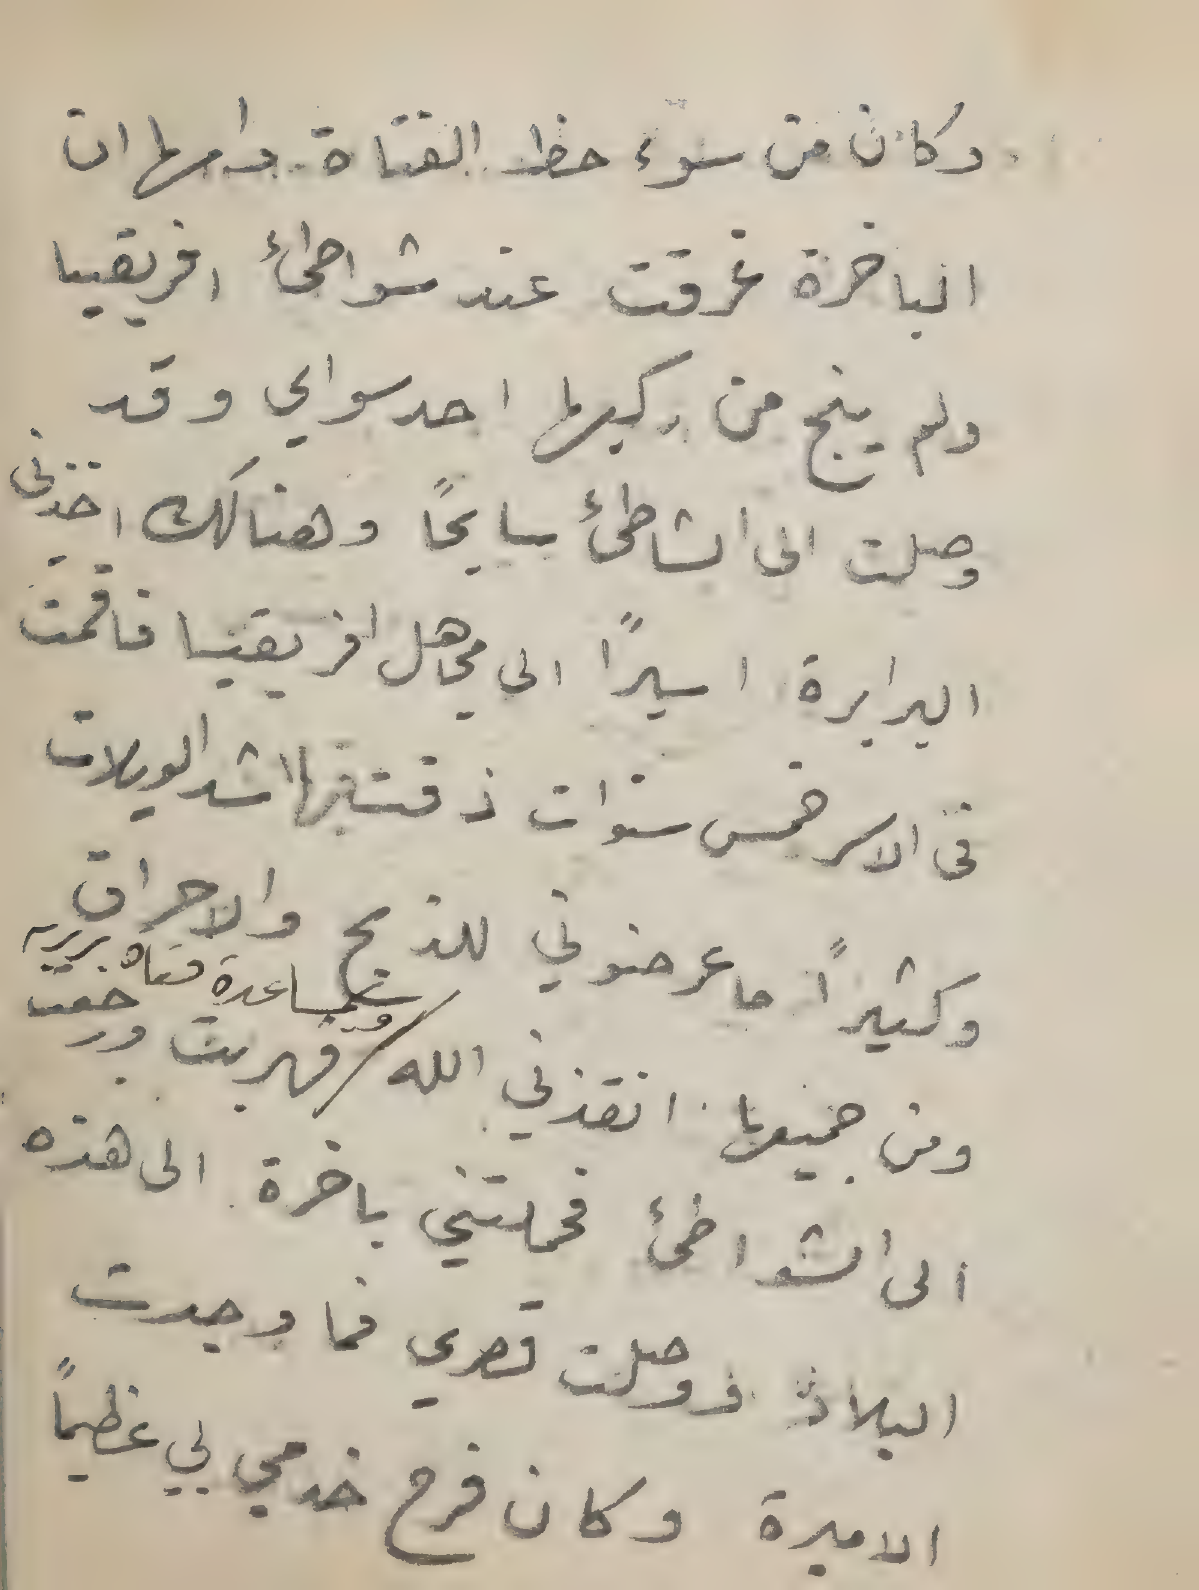 وكان من سوء حظ الفتاة وامها ان
الباخرة غرقت عند شواطئ افريقيا
ولم ينج من ركبها احد سواي وقد
وصلت الى الشاطئ سابحًا وهنالك اخذني
البرابرة اسيرًا الى مجاهل افريقيا فاقمت
في الاسر خمس سنوات ذقت فيها اشد الويلات
وكثيرًا ما عرضوني للذبح والاحراق
وبمساعدة فتاة بربريه
ومن جميعها انقذني الله / فهربت ورجعت
الى الشواطئ فحملتني باخرة الى هذه
البلاد فوصلت قصري فما وجدت
الاميرة وكان فرح خدمي بي عظيمًا